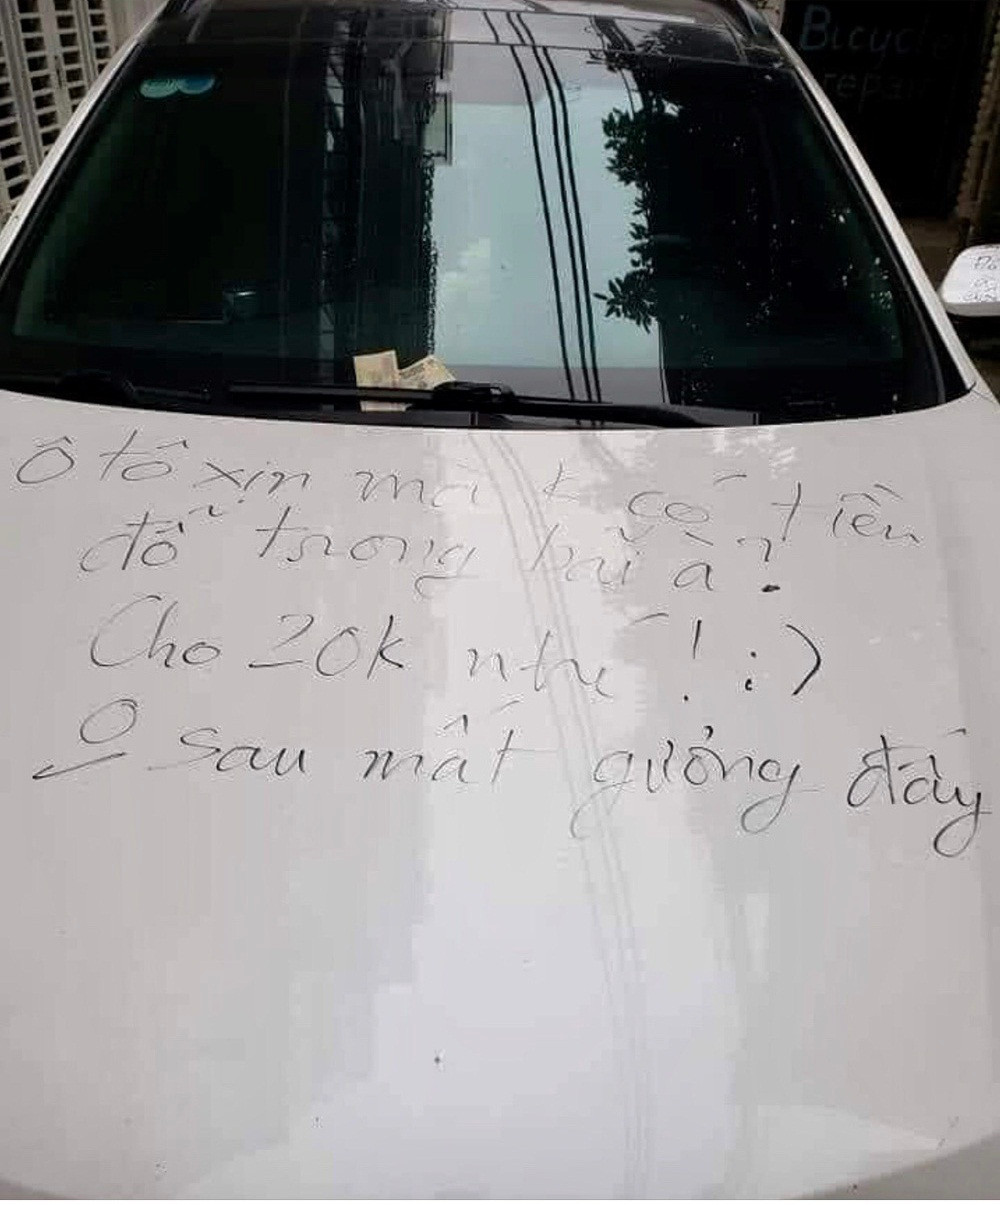 Bicycle
repair
Ô tô xịn mà k có tiền
đỗ trong bãi à?
Cho 20k nhé! :)
Ở sau mất gưởng đấy